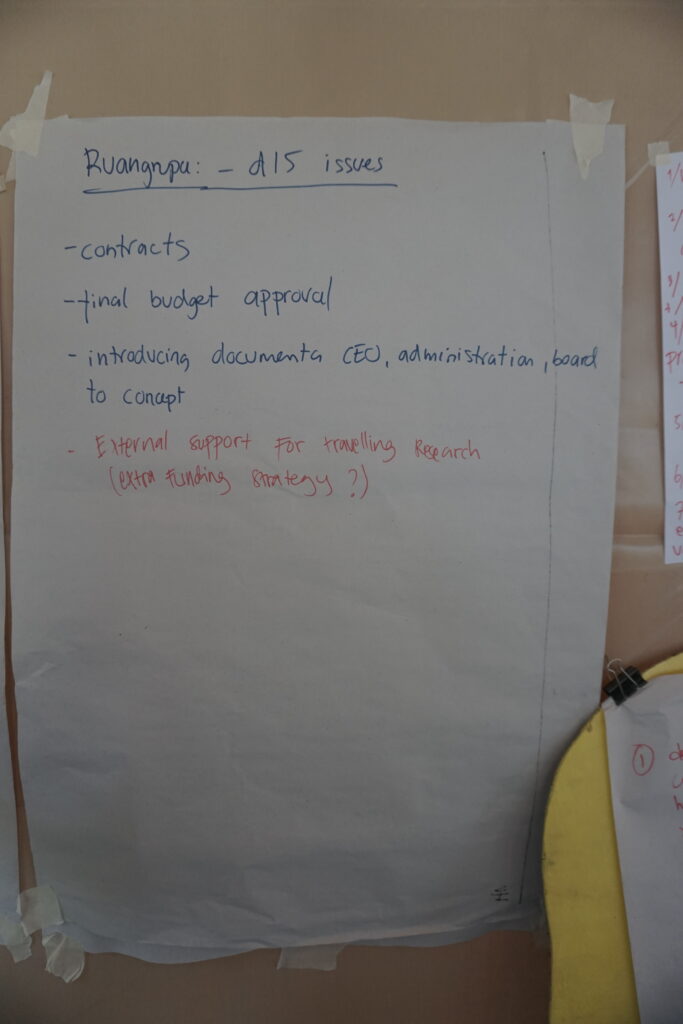 Ruangrupa: - d15 issues
- contracts
- final budget approval
- introducing documenta CEO, administration, board
to concept
- External support for travelling Research
(extra funding strategy?)
1/
2/
3/
4/
5
6/
7
1